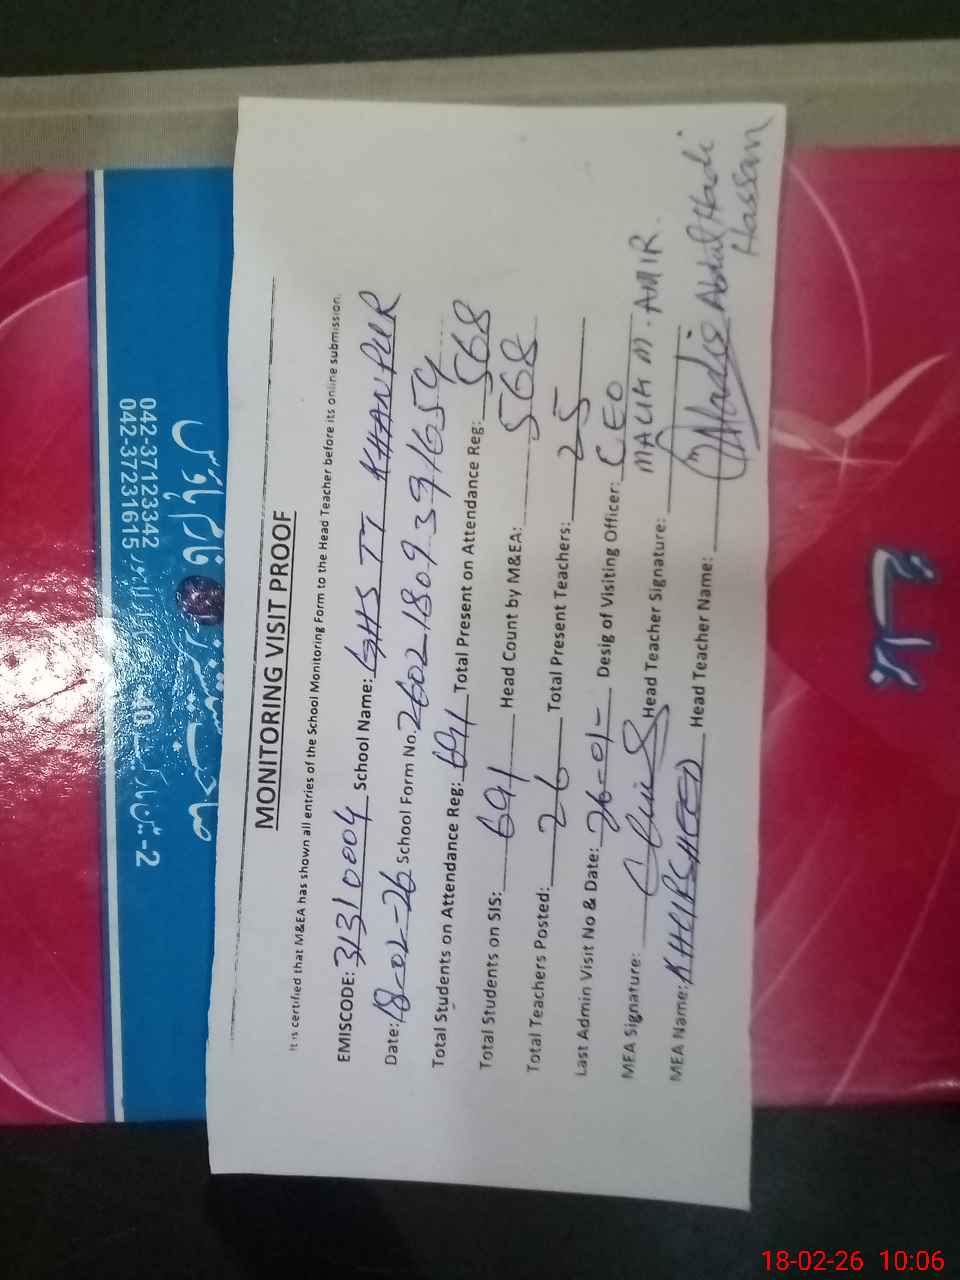 MONITORING VISIT PROOF
It is certified that M&EA has shown all entries of the School Monitoring Form to the Head Teacher before its online submission.
EMISCODE: 31310004 School Name: GHS TT KHANPUR
Date: 18-02-26 School Form No. 2602-1809 3
Total Students on Attendance Reg: 691 Total Present on Attendance Reg: 568
Total Students on SIS: 691 Head Count by M&EA: 568
Total Teachers Posted: 26 Total Present Teachers: 25
Last Admin Visit No & Date: 26-01- Desig of Visiting Officer: CEO
MALIK M. AMIR.
MEA Signature: Head Teacher Signature:
MEA Name: KHURSHEED Head Teacher Name: Abdul Hadi
Hassan
042-37123342
042-37231615
18-02-26 10:06